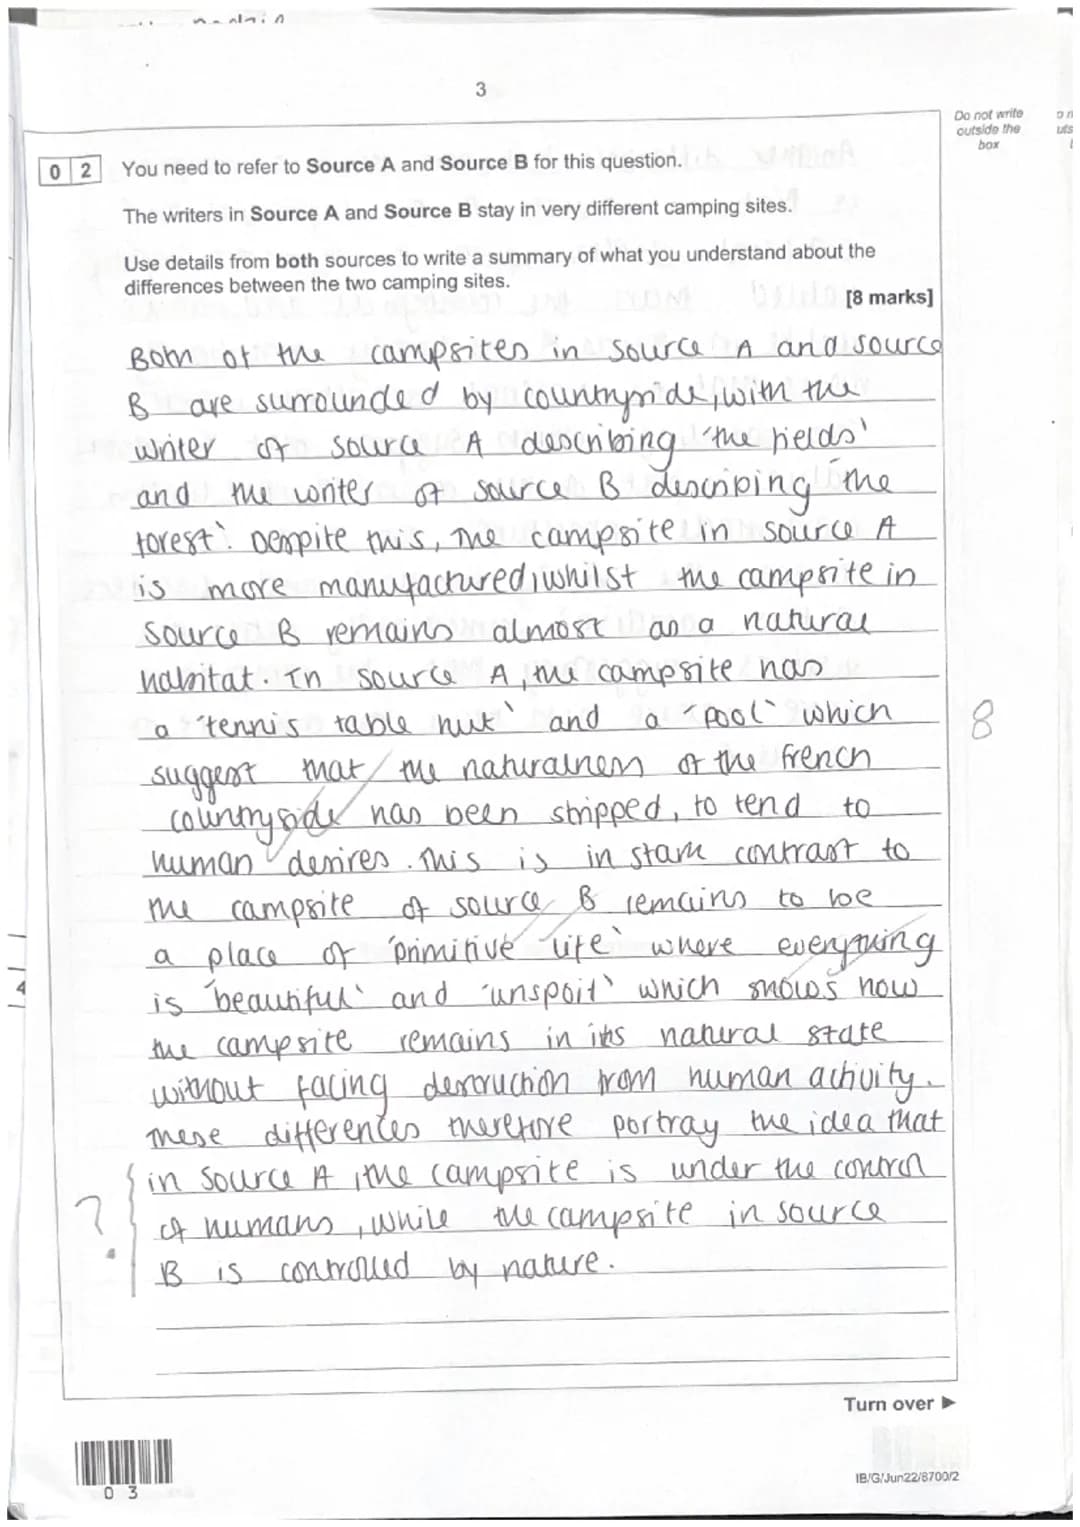 3
Do not write
outside the
box
0 2 You need to refer to Source A and Source B for this question.
The writers in Source A and Source B stay in very different camping sites.
Use details from both sources to write a summary of what you understand about the
differences between the two camping sites.
[8 marks]
Both of the campsites in source A and source
B are surrounded by countryside, with the
writer of source A describing 'the fields'
and the writer of source B describing 'the
forest'. Despite this, the campsite in source A
is more manufactured, whilst the campsite in
source B remains almost as a natural
habitat. In source A, the campsite has
a 'tennis table hut' and a 'pool' which
8
suggest that the naturalness of the french
countryside has been stripped, to tend to
human desires. This is in stark contrast to
the campsite of source B remains to be
a place of 'primitive life' where everything
is 'beautiful' and 'unspoilt' which shows how
the campsite remains in its natural state
without facing destruction from human activity.
These differences therefore portray the idea that
in source A, the campsite is under the control
? of humans, while the campsite in source
B is controlled by nature.
Turn over ►
0 3
IB/G/Jun22/8700/2